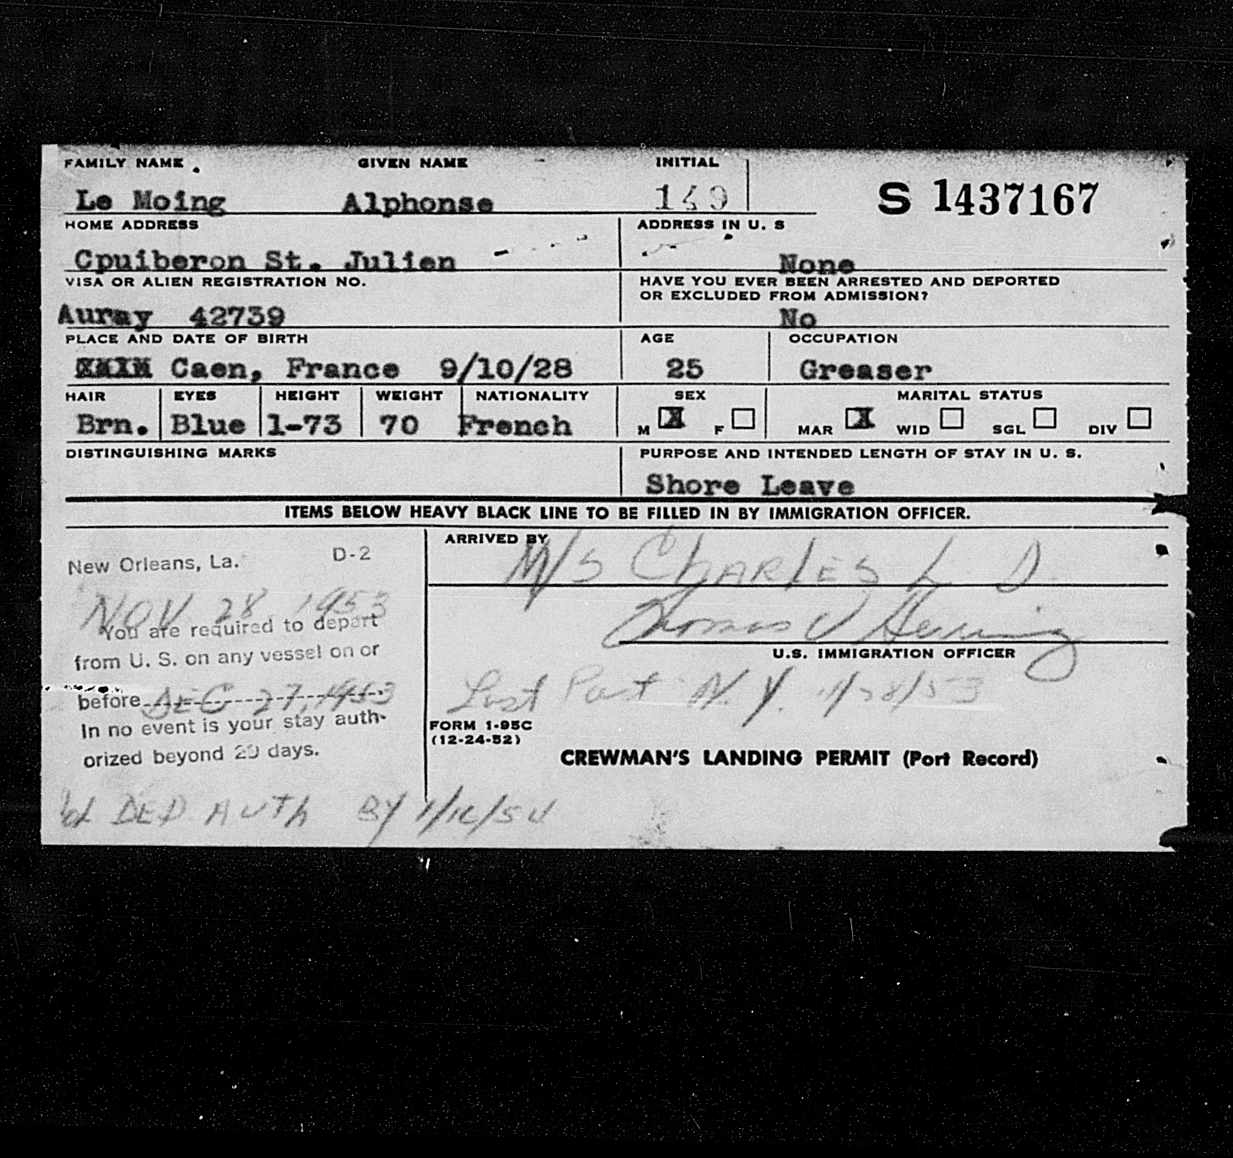 FAMILY NAME GIVEN NAME INITIAL
Le Moing Alphonse 149 S 1437167
HOME ADDRESS ADDRESS IN U. S
Cpuiberon St. Julien None
VISA OR ALIEN REGISTRATION NO. HAVE YOU EVER BEEN ARRESTED AND DEPORTED
OR EXCLUDED FROM ADMISSION?
Auray 42739 No
PLACE AND DATE OF BIRTH AGE OCCUPATION
Caen, France 9/10/28 25 Greaser
HAIR EYES HEIGHT WEIGHT NATIONALITY SEX MARITAL STATUS
Brn. Blue 1-73 70 French M X F MAR X WID SGL DIV
DISTINGUISHING MARKS PURPOSE AND INTENDED LENGTH OF STAY IN U. S.
Shore Leave
ITEMS BELOW HEAVY BLACK LINE TO BE FILLED IN BY IMMIGRATION OFFICER.
New Orleans, La. D-2
NOV 28 1953
You are required to depart
from U. S. on any vessel on or
before DEC 27, 1953
In no event is your stay auth-
orized beyond 29 days.
DED AUTH BY 1/16/54
ARRIVED BY
M/S CHARLES L D.
Thomas
U.S. IMMIGRATION OFFICER
Last Port N.Y. 1/28/53
FORM 1-95C
(12-24-52)
CREWMAN'S LANDING PERMIT (Port Record)